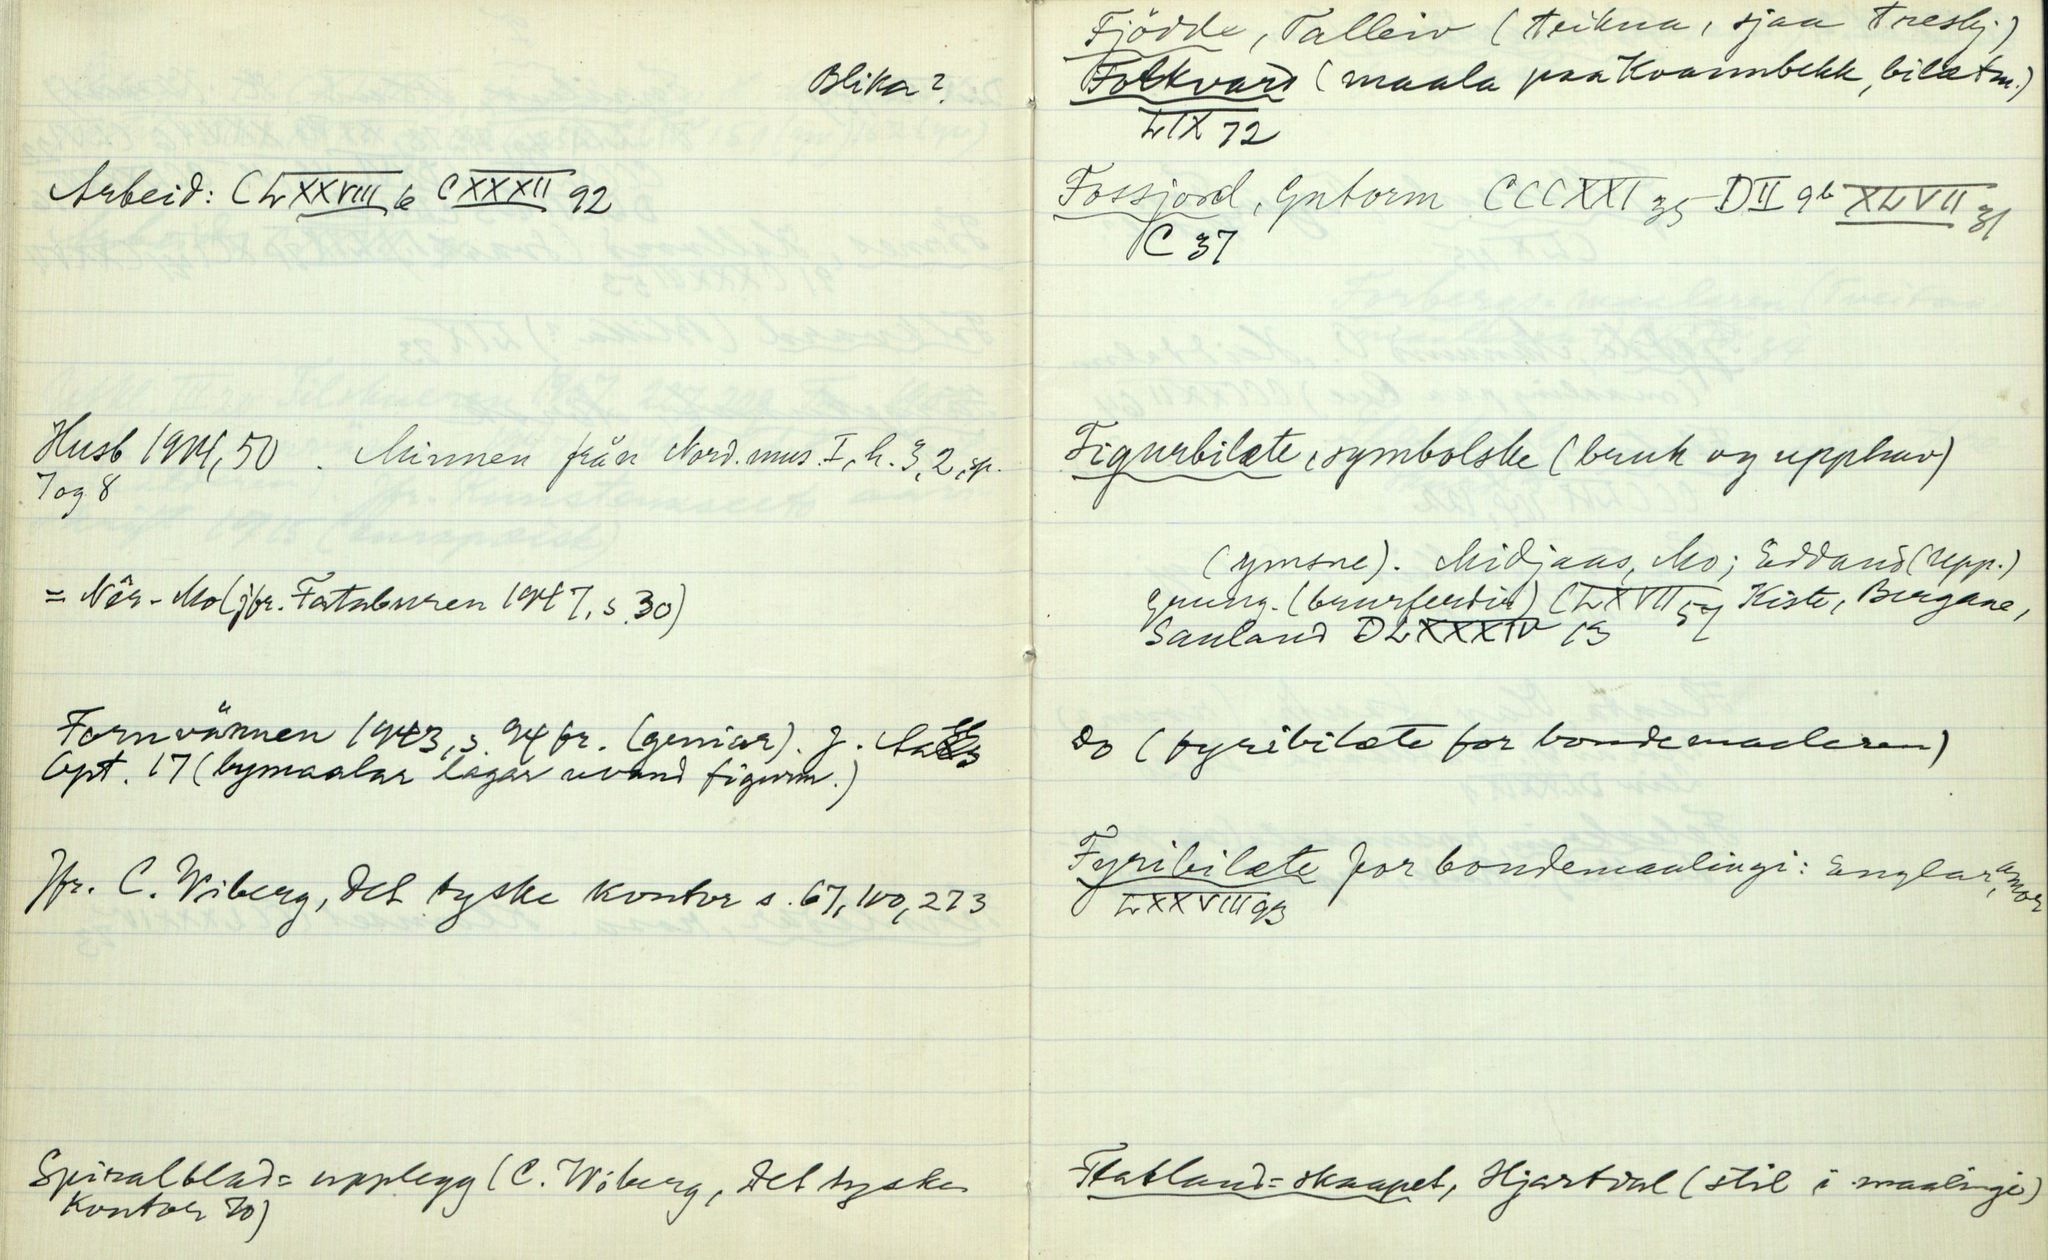 Blika?
Arbeid: CLXXVIII 6 CXXXII 92
Husb 1944, 50. Minnen från Nord. mus. I, h. 3, 2, sp.
7 og 8
= Mo (jfr. Fataburen 1947, s. 30)
Fornvännen 1943, s. 94 fr. (geniar). J.
17 (bymaalar lagar uvand figurm.)
Jfr. C. Wiberg, Det tyske kontor s. 67, 100, 273
Spiralblad= upplegg (C. Wiberg, Det tyske
kontor 70)
Fjödde, Talleiv (teikna, sjaa Treskj.)
Folkvard (maala paa Kvannbekk, bilætm.)
LIX 72
Fossjord, Gutorm CCCXXI 35 DII 96 XLVII 31
C 37
Figurbilæte, symbolske (bruk og upphav)
(ymsne). Midjaas, Mo; Eddand (Upp.)
Grung. (brurferdir) CLXVII 57 Kiste, Bergane,
Sauland DLXXXIV 13
Do (fyribilæte for bondemaaleren)
Fyribilæte for bondemaalingi: Englar, amor
LXXVIII 93
Flatland=skaapet, Hjartdal (stil i maalingi)